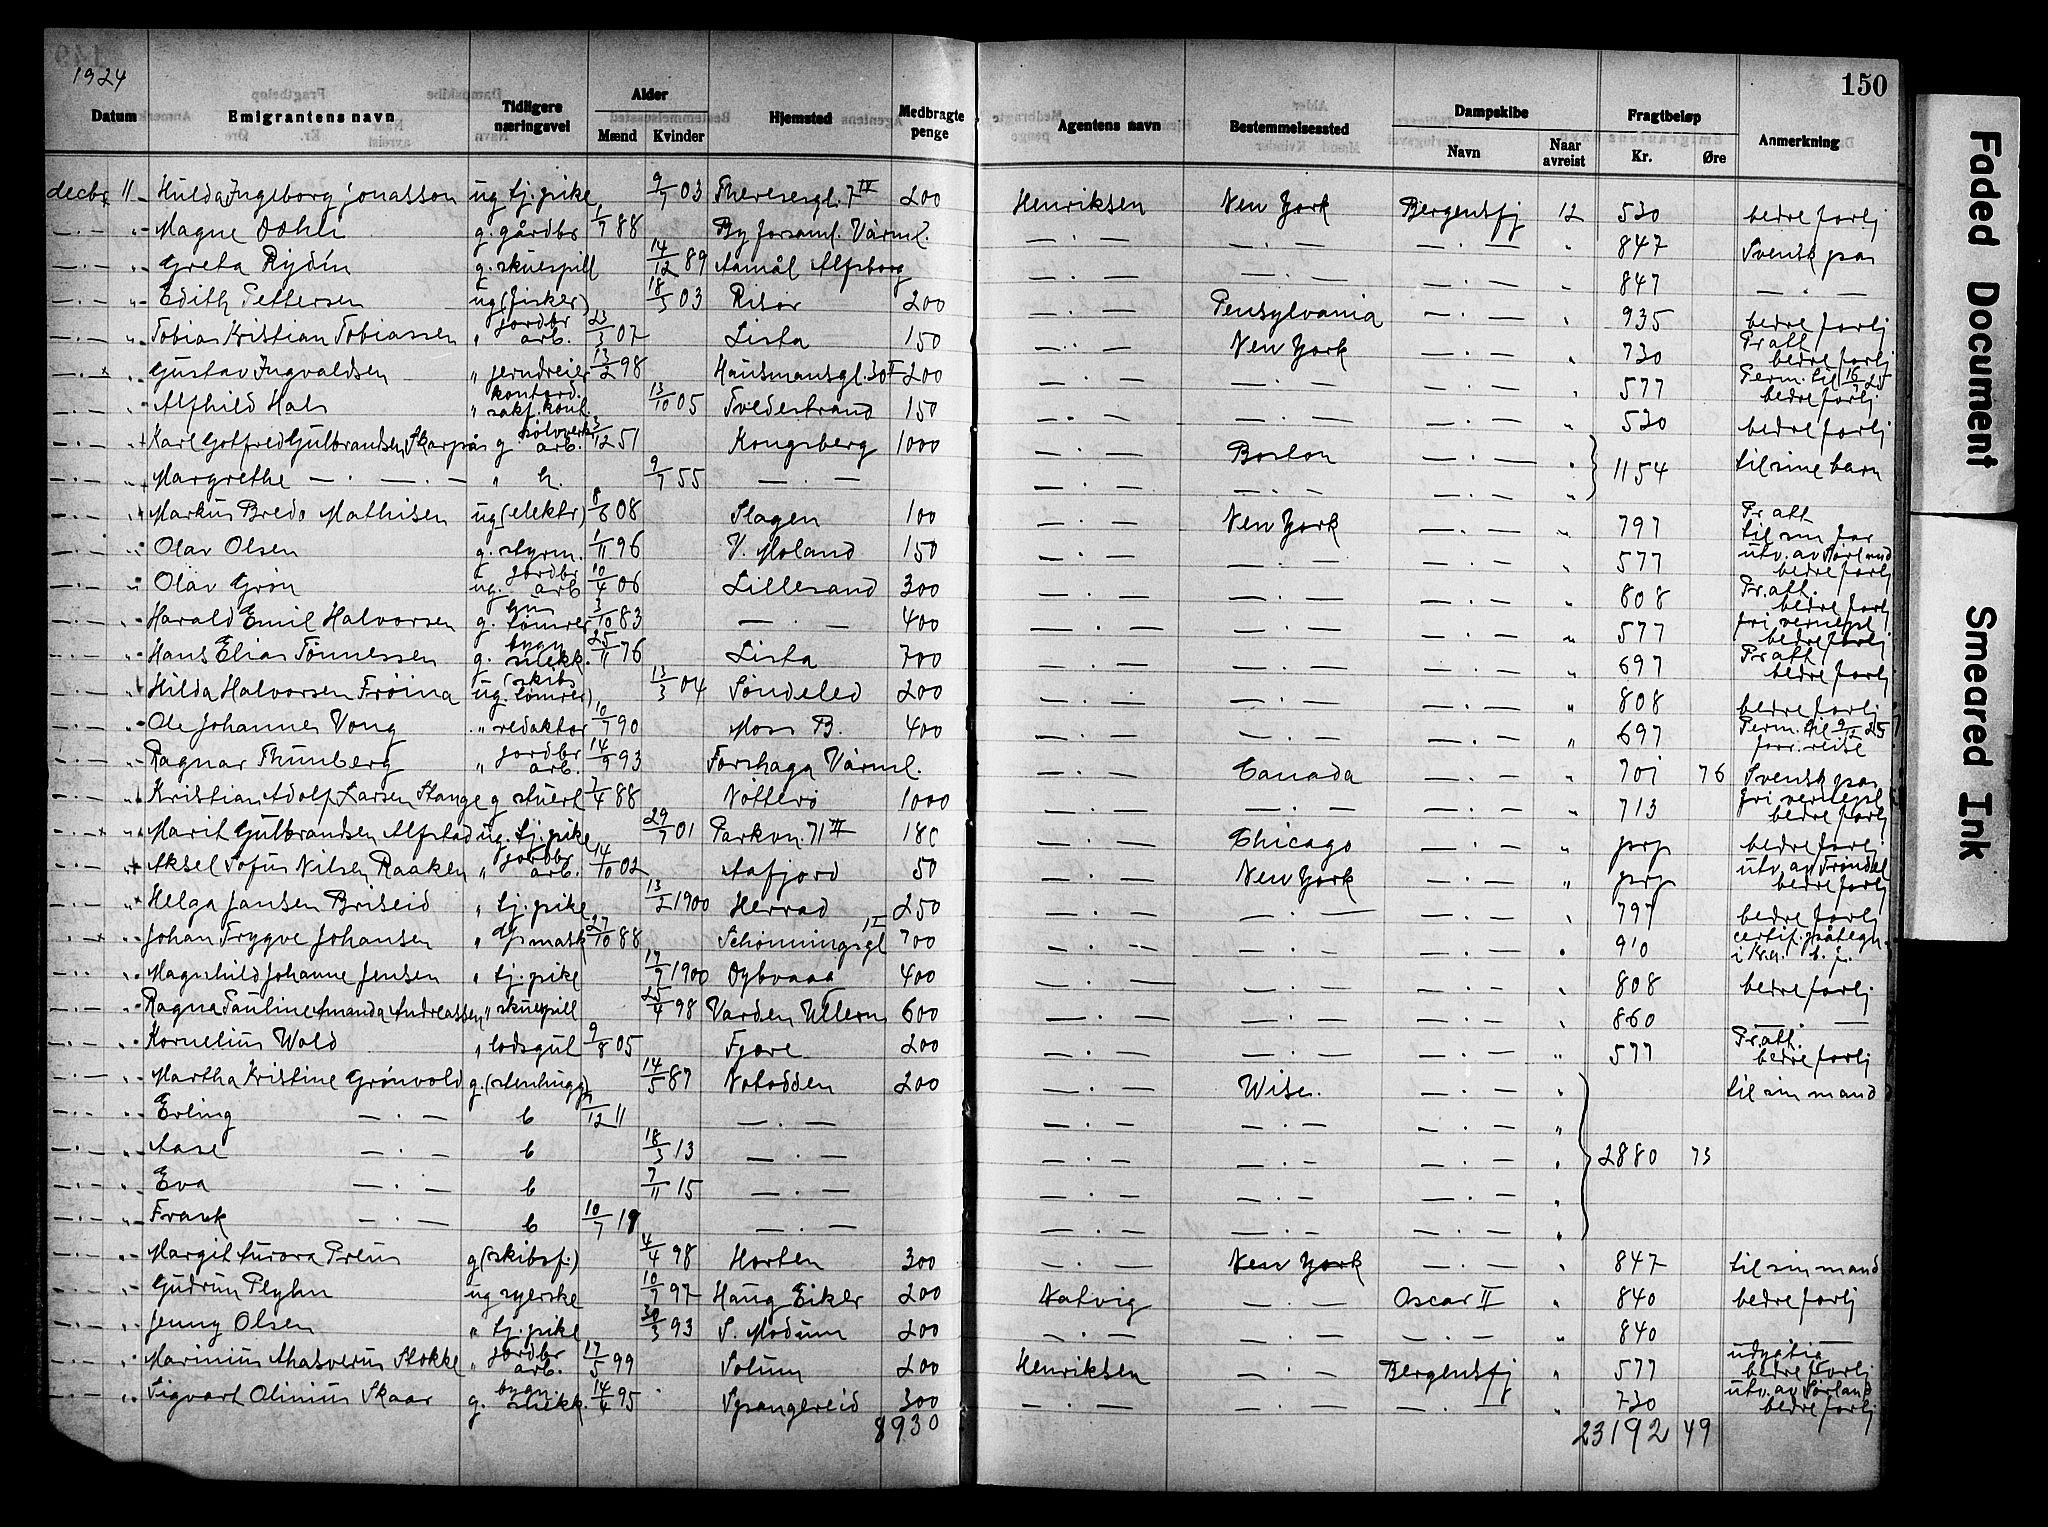 150
1924
Datum Emigrantens navn Tidligere næringsvei Alder Mænd Kvinder Hjemsted Medbragte penge Agentens navn Bestemmelsessted Dampskibe Navn Naar avreist Fragtbeløp Kr. Øre Anmerkning
decbr 11 Hulda Ingeborg Jonasson ug tj. pike 9/7 03 Theresesgt. 7 IV 200 Henriksen New York Bergensfj 12 530 bedre forhj
— . — " Magne Dahli g. gårdbr 1/7 88 By forsaml. Värml. — . — — . — — . — " 847 Svensk pas
— . — " Greta Rydin g. skuespill 14/12 89 Aamål Alfsborg — . — — . — — . — " 847 — . —
— . — " Edith Pettersen ug (fisker) 18/5 03 Risør 200 — . — Pensylvania — . — " 935 bedre forhj
— . — " Tobias Kristian Tobiassen " jordbr arb. 23/3 07 Lista 150 — . — New York — . — " 730 Pr att bedre forhj
— . — " Gustav Ingvaldsen " jerndreier 13/2 98 Hausmansgt. 30 I 200 — . — — . — — . — " 577 Perm. til 16/ 25 bedre forhj
— . — " Alfhild Hals " sakf. kont. 13/10 05 Tvedestrand 150 — . — — . — — . — " 530 bedre forhj
— . — " Karl Gotfred Gulbrandsen Skarpås g sølvverks arb. 3/12 51 Kongsberg 1000 — . — Boston — . — " 1154 til sine barn
— . — " Margrethe — . — . — " h. 9/7 55 — . — — . — — . — — . — "
— . — " Markus Bredo Mathisen ug (elektr) 8/6 08 Slagen 100 — . — New York — . — " 797 Pr att til sin far
— . — " Olav Olsen g. styrm. 1/11 96 V. Moland 150 — . — — . — — . — " 577 utv. av Sørland bedre forhj
— . — " Olav Grøn ug. jordbr arb 10/4 06 Lillesand 300 — . — — . — — . — " 808 Pr. att. bedre forhj
— . — " Harald Emil Halvorsen g. tømrer 3/10 83 — . — 400 — . — — . — — . — " 577 fri vernepl bedre forhj
— . — " Hans Elias Tønnessen g. bygn snekk. 25/11 76 Lista 700 — . — — . — — . — " 697 Pr att bedre forhj
— . — " Hilda Halvorsen Frøina ug. (skibs tømrer) 13/3 04 Søndeled 200 — . — — . — — . — " 808 bedre forhj
— . — " Ole Johannes Vong " redaktør 10/7 90 Moss B. 400 — . — — . — — . — " 697 Perm. til 9/12 25 forr. reise
— . — " Ragnar Thunberg " jordbr arb. 14/9 93 Forshaga Värml. — . — Canada — . — " 701 76 Svensk pas
— . — " Kristian Adolf Larsen Stange g stuert 7/4 88 Nøtterø 1000 — . — — . — — . — " 713 fri vernepl bedre forhj
— . — " Marit Gulbrandsen Alfstad ug. tj. pike 29/7 01 Parkvn. 71 III 180 — . — Chicago — . — " prp bedre forhj
— . — " Aksel Sofus Nilsen Raaken " jordbr arb. 14/10 02 Aafjord 50 — . — New York — . — " prp utv. av Trøndel bedre forhj
— . — " Helga Jansen Briseid " tj. pike 13/2 1900 Herrad 250 — . — — . — — . — " 797 bedre forhj
— . — " Johan Trygve Johansen " mask 27/10 88 Schønningsgt 1 I 700 — . — — . — — . — " 910 certif. påtegn i Kra. b. f.
— . — " Magnhild Johanne Jensen " tj. pike 17/9 1900 Dybvaag 400 — . — — . — — . — " 808 bedre forhj
— . — " Ragna Pauline Amanda Andreassen " skuespill 25/4 98 Varden Ullern 600 — . — — . — — . — " 860 — . —
— . — " Kornelius Wold " lodsgut 9/8 05 Fjære 200 — . — — . — — . — " 577 Pr. att. bedre forhj
— . — " Martha Kristine Grønvold g (stenhugg) 14/5 87 Notodden 200 — . — Wise. — . — " til sin mand
— . — " Erling — . — b /12 11 — . — — . — — . — — . — "
— . — " Aase — . — b 18/3 13 — . — — . — — . — — . — " 2880 73
— . — " Eva — . — b 7/11 15 — . — — . — — . — — . — "
— . — " Frank — . — b 10/7 19 — . — — . — — . — — . — "
— . — " Margit Aurora Preus g (skibsf.) 4/4 98 Horten 300 — . — New York — . — " 847 til sin mand
— . — " Gudrun Pleyhn ug syerske 10/7 97 Haug Eiker 200 Natvig — . — Oscar II " 840 bedre forhj
— . — " Jenny Olsen " tj. pike 30/3 93 S. Modum 200 — . — — . — — . — " 840 — . —
— . — " Marinius Ahasverus Stokke " jordbr arb. 17/5 99 Solum 200 Henriksen — . — Bergensfj " 577 udygtig bedre forhj
— . — " Sigvart Olinius Skaar g. bygn. snekk 14/4 95 Spangereid 300 — . — — . — — . — " 730 utv. av Sørland bedre forhj
8930 23192 49
Faded Document
Smeared Ink